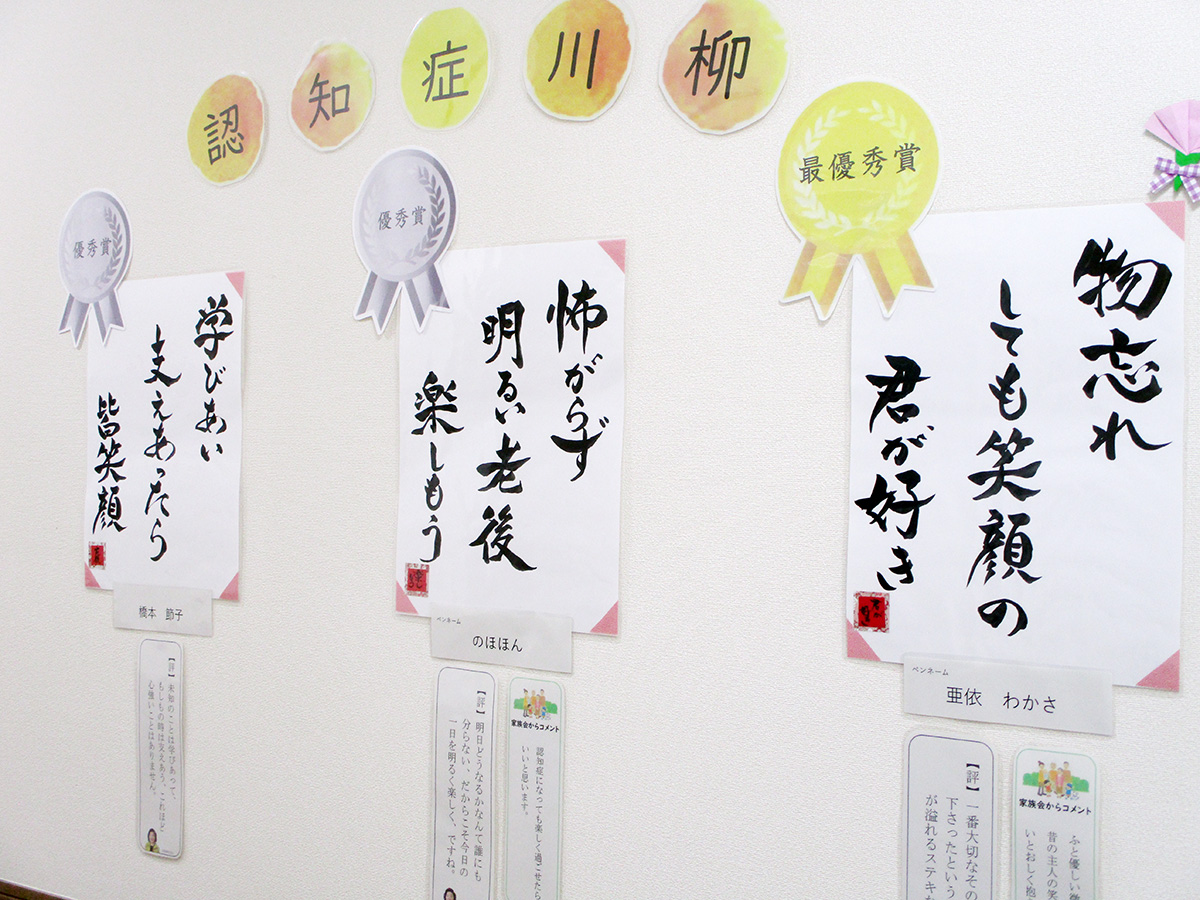 認知症川柳
最優秀賞
物忘れ
しても笑顔の
君が好き
ペンネーム
亜依 わかさ
【評】一番大切なその
下さったという
が溢れるステキな
家族会からコメント
ふと優しい微
昔の主人の笑
いとおしく抱
優秀賞
怖がらず
明るい老後
楽しもう
ペンネーム
のほほん
【評】明日どうなるかなんて誰にも
分らない、だからこそ今日の
一日を明るく楽しく、ですね。
家族会からコメント
認知症になっても楽しく過ごせたら
いいと思います。
優秀賞
学びあい
支えあったら
皆笑顔
橋本 節子
【評】未知のことは学びあって、
もしもの時は支えあう。これほど
心強いことはありません。